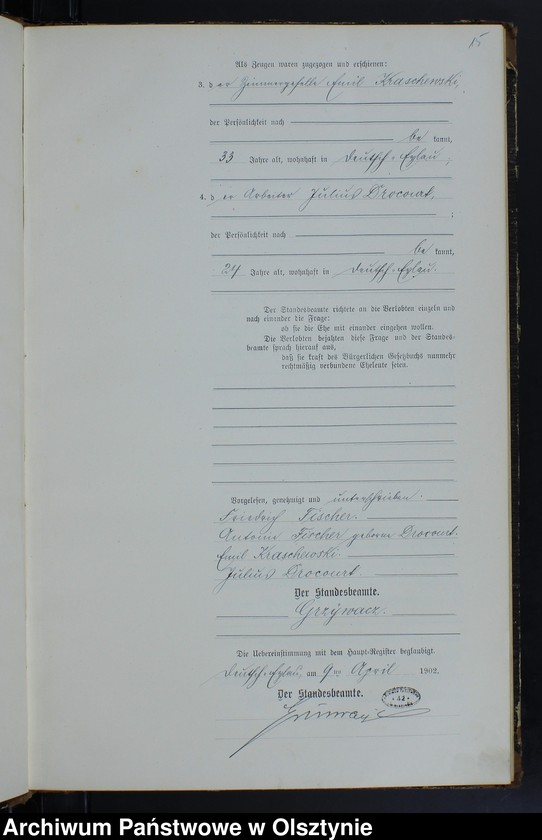 15
Als Zeugen waren zugezogen und erschienen:
3. d er Zimmergeselle Emil Kraschewski,
der Persönlichkeit nach
be kannt,
33 Jahre alt, wohnhaft in Deutsch-Eylau,
4. d er Arbeiter Julius Drocourt,
;
der Persönlichkeit nach
be kannt,
24 Jahre alt, wohnhaft in Deutsch-Eylau.
Der Standesbeamte richtete an die Verlobten einzeln und
nach einander die Frage:
ob sie die Ehe mit einander eingehen wollen.
Die Verlobten bejahten diese Frage und der Standes-
beamte sprach hierauf aus,
daß sie kraft des Bürgerlichen Gesetzbuchs nunmehr
rechtmäßig verbundene Eheleute seien.
Vorgelesen, genehmigt und unterschrieben.
Friedrich Fischer.
Fischer geborene Drocourt.
Emil Kraschewski.
Julius Drocourt.
Der Standesbeamte.
Grzywacz.
Die Uebereinstimmung mit dem Haupt-Register beglaubigt.
Deutsch-Eylau, am 9ten April 1902.
Der Standesbeamte.
Archiwum Państwowe w Olsztynie